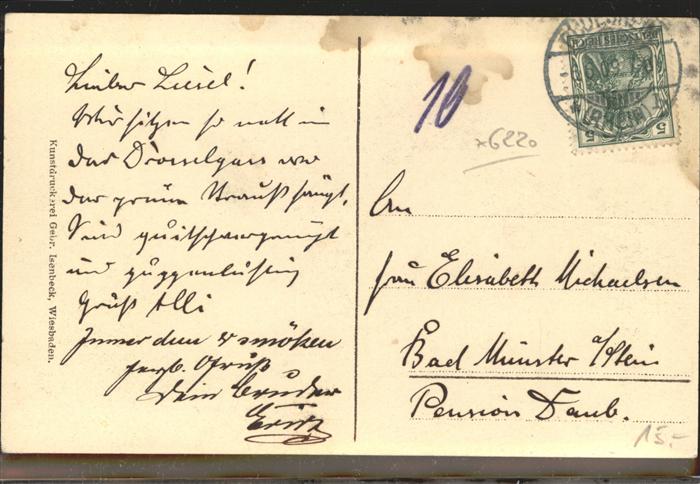 Lieber Liesel!
Wir sitzen so nett in
das Drosselgass wo
der grüne Strauss hängt,
Sind quitschvergnügt
und
Gruß Alli
Immer dem
herzl. Gruß
Dein Bruder
Fritz
Kunstdruckerei Gebr. Isenbeck, Wiesbaden.
10
x6220
DEUTSCHES REICH
5 5
(RHEIN)
An
Frau Elisabeth Michaelsen
Bad Münster a/Stein
Pension Daub.
15.-